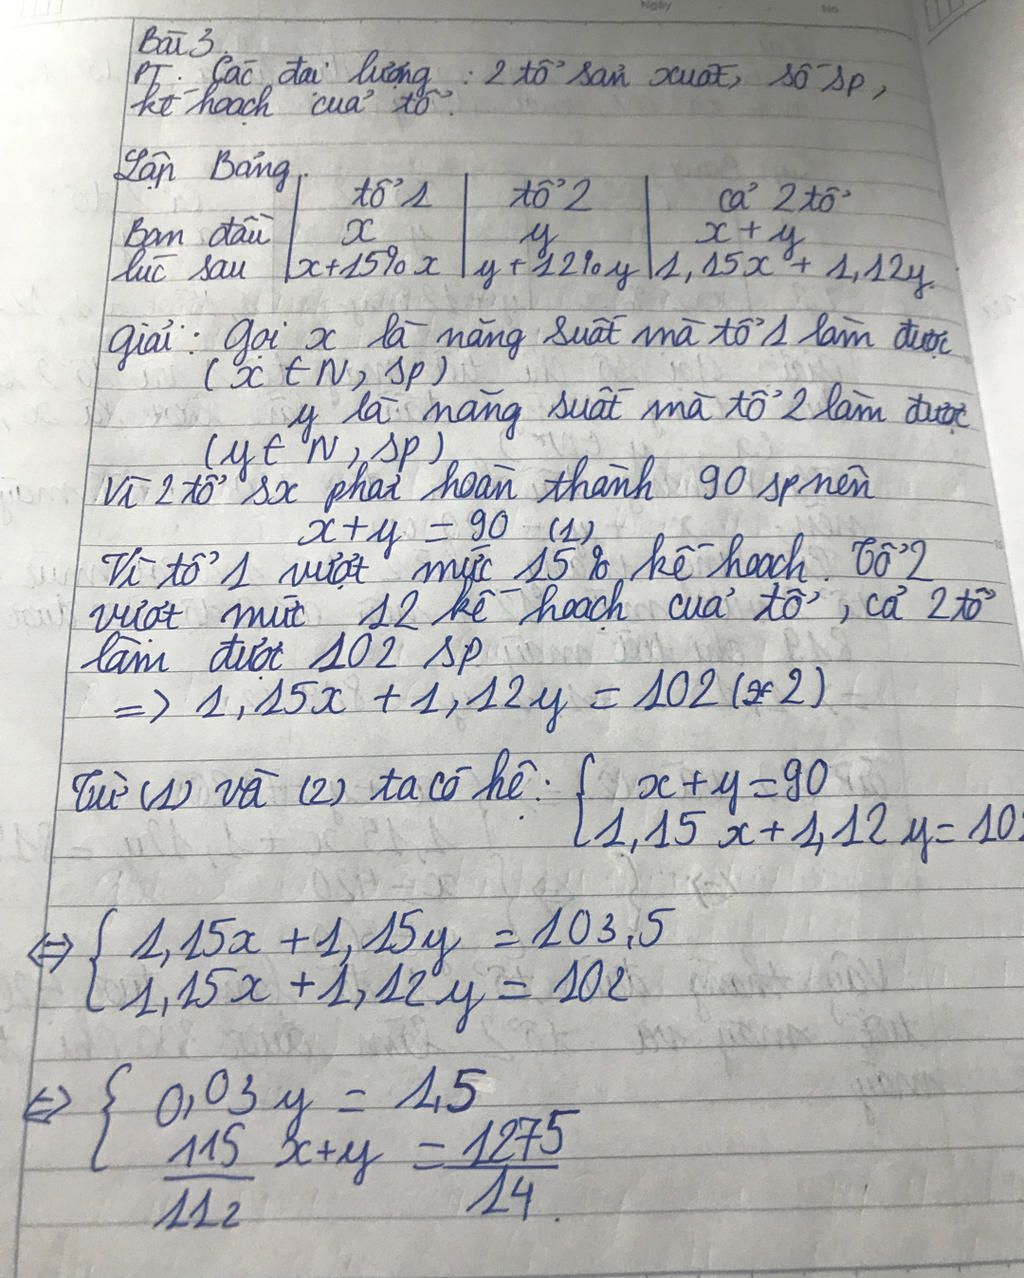 Ngày No
Bài 3.
PT. Các đại lượng : 2 tổ sản xuất, số sp,
kế hoạch của tổ.
Lập Bảng.
tổ 1 tổ 2 cả 2 tổ
Ban đầu x y x + y
lúc sau x+15% x y + 12% y 1,15x + 1,12y.
Giải: Gọi x là năng suất mà tổ 1 làm được
( x ∈ N, sp)
y là năng suất mà tổ 2 làm được
(y ∈ N, sp)
Vì 2 tổ sx phải hoàn thành 90 sp nên
x+y = 90 (1)
Vì tổ 1 vượt mức 15% kế hoạch. Tổ 2
vượt mức 12 kế hoạch của tổ, cả 2 tổ
làm được 102 sp
=> 1,15x + 1,12y = 102 (2)
Từ (1) và (2) ta có hệ: { x+y=90
1,15 x+1,12 y= 102
⇔ { 1,15x +1,15y = 103,5
1,15x +1,12y = 102
⇔ { 0,03 y = 1,5
115/112 x+y = 1275/14.